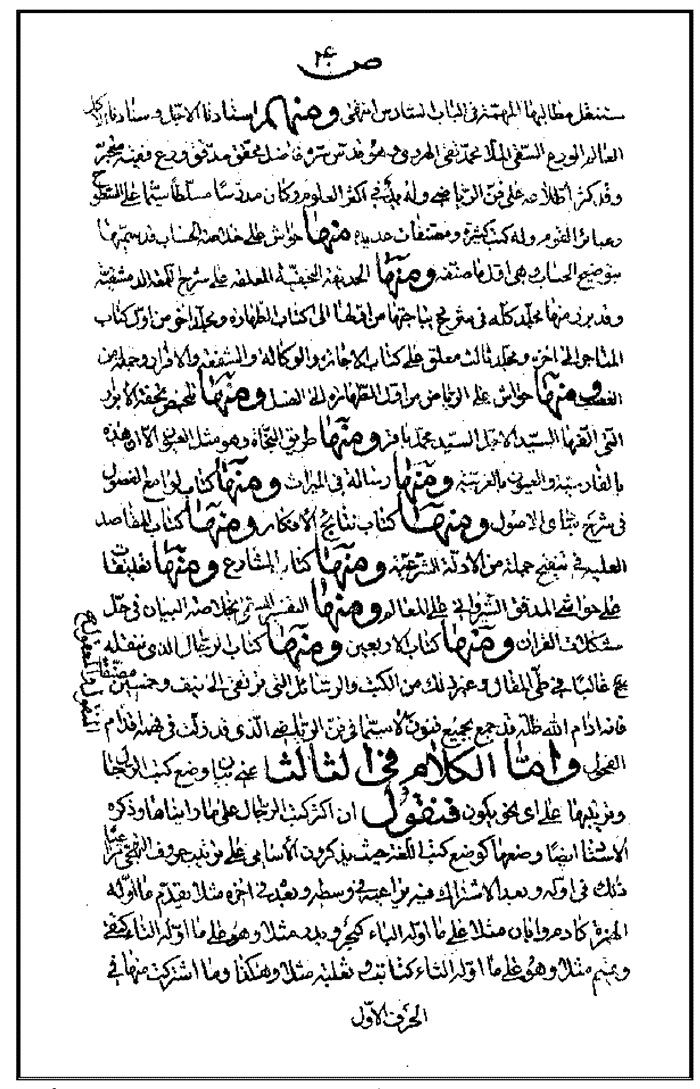 ص ٢٤
سننقل مطالبها المهمة في الباب السادس انتهى ومنهم استادنا الاجل وسنادنا
العالم الورع التقي الملا محمد تقي الهروي وهو قدس سره فاضل محقق مدقق ورع وفيه متبحر
وقد كثر اطلاعه على فن الرياضي وله يد في اكثر العلوم وكان مدرسا مسلطا سيما على السطوح
وعبائر القوم وله كتب كثيرة ومصنفات عديده منها حواش على خلاصة الحساب قد سميتها
بتوضيح الحساب وهي اول ما صنفه ومنها الحديقة النجفية المعلقة على شرح اللمعة الدمشقية
وقد برز منها مجلد كله في شرح ديباجتها من اولها الى كتاب الطهارة ومجلد اخر من اول كتاب
المتاجر الى اخره ومجلد ثالث معلق على كتاب الاجارة والوكالة والشفعة والاقرار وجملة من
القضا ومنها حواش على الرياض من اول الطهارة الى الغسل ومنها تلخيص تحفة الابرار
التي الفها السيد الاجل السيد محمد باقر ومنها طريق النجاة وهو مثل العيون الا ان هذه
بالفارسية والعيون بالعربية ومنها رسالة في الميراث ومنها كتاب لوامع الفصول
في شرح مبادي الاصول ومنها كتاب نتايج الافكار ومنها كتاب المقاصد
العليه في تنقيح جملة من الادلة الشرعية ومنها كتاب المشارع ومنها تعليقات
على حواشي المدقق الشرواني على المعالم ومنها التفسير المسمى بخلاصة البيان في حل
مشكلات القران ومنها كتاب الاربعين ومنها كتاب الرجال الذي ننقله
غالبا في طي المقال وغير ذلك من الكتب والرسائل التي ترتقي الى نيف وخمسين مصنفا
فانه ادام الله ظله قد جمع بجميع فنون لا سيما في فن الرياضي الذي قد زلت فيه اقدام
المنقول والمعقول
الفحول واما الكلام في الثالث اعني بيان وضع كتب الرجال
وترتيبها على اي نحو يكون فنقول ان اكثر كتب الرجال على ما رايناها وذكره
الاستاد ايضا وضعها كوضع كتب اللغة حيث يذكرون الأسامي على ترتيب حروف التهجي
ذلك في اوله وبعد الاشتراك فيه يراعيه في وسطه وبعده في اخره مثلا يقدم ما اوله
الهمزة كادم وابان مثلا على ما اوله الباء كبحر وبريد مثلا وهو على ما اوله التاء كتقي
وتميم مثلا وهو على ما اوله الثاء كثابت وثعلبه مثلا وهكذا وما اشتركت منها في
الحرف الاول